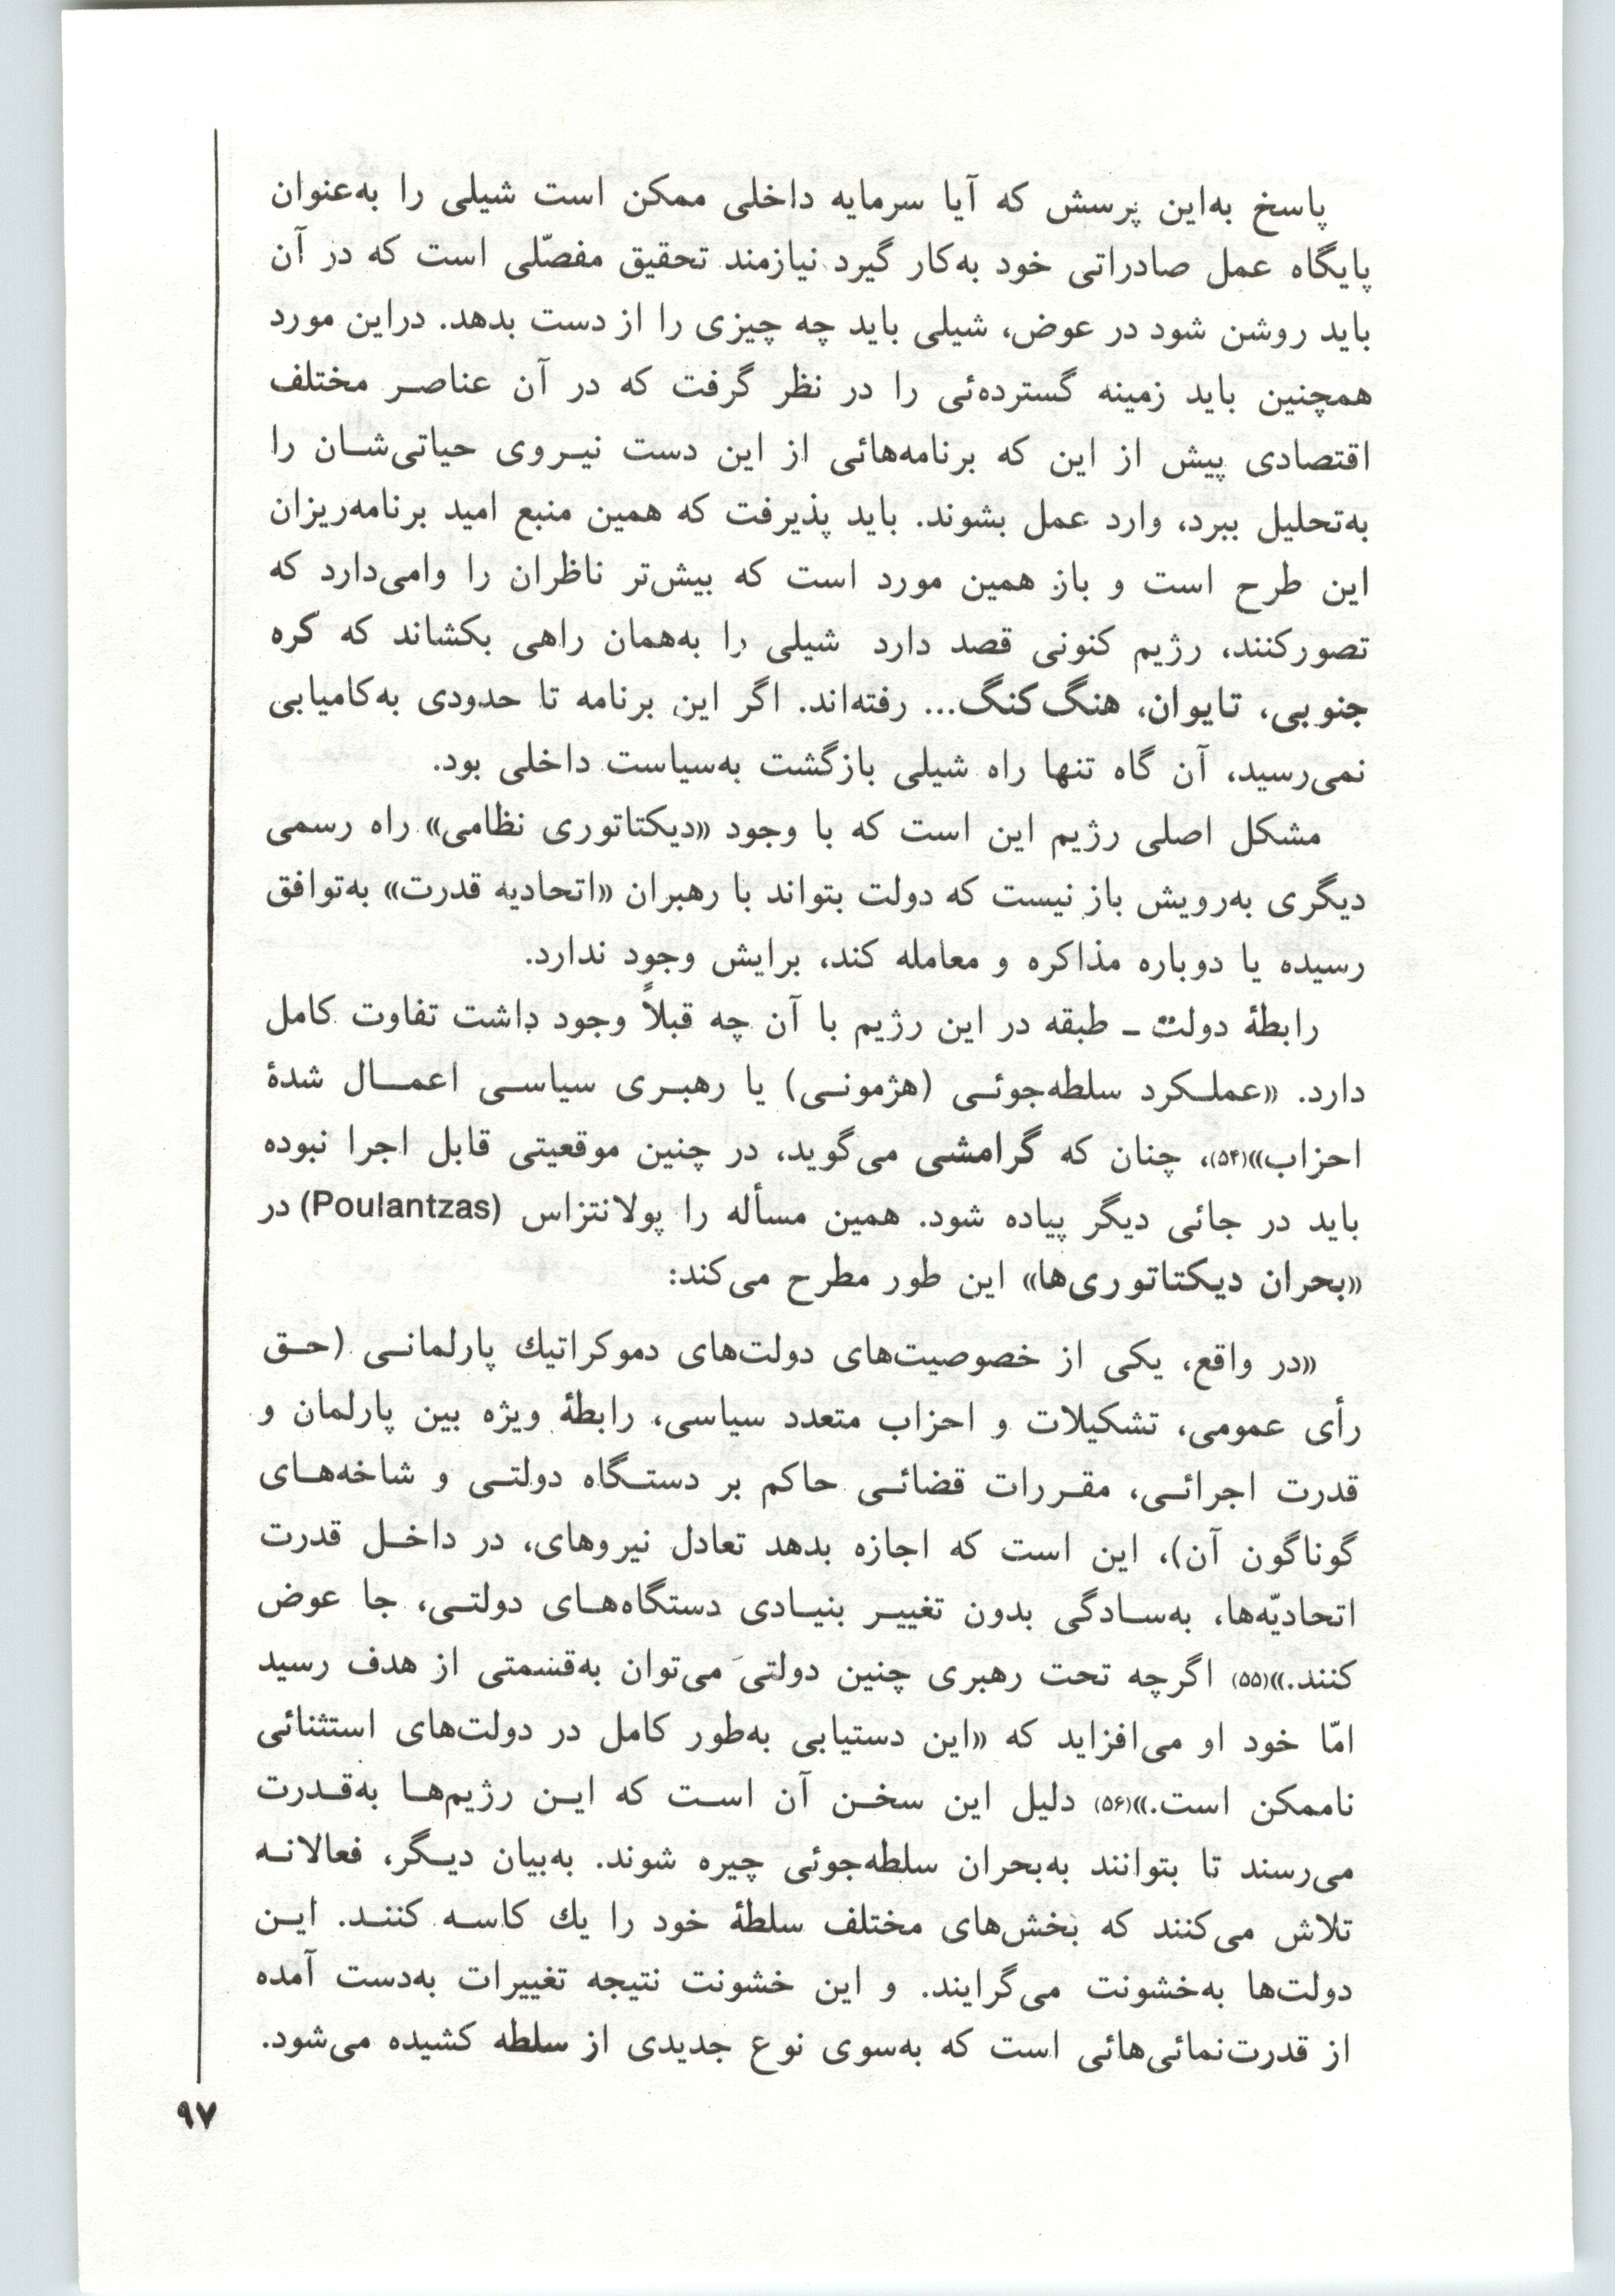 پاسخ به‌این پرسش که آیا سرمایه داخلی ممکن است شیلی را به‌عنوان
پایگاه عمل صادراتی خود به‌کار گیرد نیازمند تحقیق مفصّلی است که در آن
باید روشن شود در عوض، شیلی باید چه چیزی را از دست بدهد. دراین مورد
همچنین باید زمینه گسترده‌ئی را در نظر گرفت که در آن عناصر مختلف
اقتصادی پیش از این که برنامه‌هائی از این دست نیروی حیاتی‌شان را
به‌تحلیل ببرد، وارد عمل بشوند. باید پذیرفت که همین منبع امید برنامه‌ریزان
این طرح است و باز همین مورد است که بیش‌تر ناظران را وامی‌دارد که
تصورکنند، رژیم کنونی قصد دارد شیلی را به‌همان راهی بکشاند که کره
جنوبی، تایوان، هنگ‌کنگ... رفته‌اند. اگر این برنامه تا حدودی به‌کامیابی
نمی‌رسید، آن گاه تنها راه شیلی بازگشت به‌سیاست داخلی بود.
مشکل اصلی رژیم این است که با وجود «دیکتاتوری نظامی» راه رسمی
دیگری به‌رویش باز نیست که دولت بتواند با رهبران «اتحادیه قدرت» به‌توافق
رسیده یا دوباره مذاکره و معامله کند، برایش وجود ندارد.
رابطهٔ دولت ـ طبقه در این رژیم با آن چه قبلاً وجود داشت تفاوت کامل
دارد. «عملکرد سلطه‌جوئی (هژمونی) یا رهبری سیاسی اعمال شدهٔ
احزاب»(۵۴)، چنان که گرامشی می‌گوید، در چنین موقعیتی قابل اجرا نبوده
باید در جائی دیگر پیاده شود. همین مسأله را پولانتزاس (Poulantzas) در
«بحران دیکتاتوری‌ها» این طور مطرح می‌کند:
«در واقع، یکی از خصوصیت‌های دولت‌های دموکراتیك پارلمانی (حق
رأی عمومی، تشکیلات و احزاب متعدد سیاسی، رابطهٔ ویژه بین پارلمان و
قدرت اجرائی، مقررات قضائی حاکم بر دستگاه دولتی و شاخه‌های
گوناگون آن)، این است که اجازه بدهد تعادل نیروهای، در داخل قدرت
اتحادیّه‌ها، به‌سادگی بدون تغییر بنیادی دستگاه‌های دولتی، جا عوض
کنند.»(۵۵) اگرچه تحت رهبری چنین دولتی می‌توان به‌قسمتی از هدف رسید
امّا خود او می‌افزاید که «این دستیابی به‌طور کامل در دولت‌های استثنائی
ناممکن است.»(۵۶) دلیل این سخن آن است که این رژیم‌ها به‌قدرت
می‌رسند تا بتوانند به‌بحران سلطه‌جوئی چیره شوند. به‌بیان دیگر، فعالانه
تلاش می‌کنند که بخش‌های مختلف سلطهٔ خود را یك کاسه کنند. این
دولت‌ها به‌خشونت می‌گرایند. و این خشونت نتیجه تغییرات به‌دست آمده
از قدرت‌نمائی‌هائی است که به‌سوی نوع جدیدی از سلطه کشیده می‌شود.
۹۷